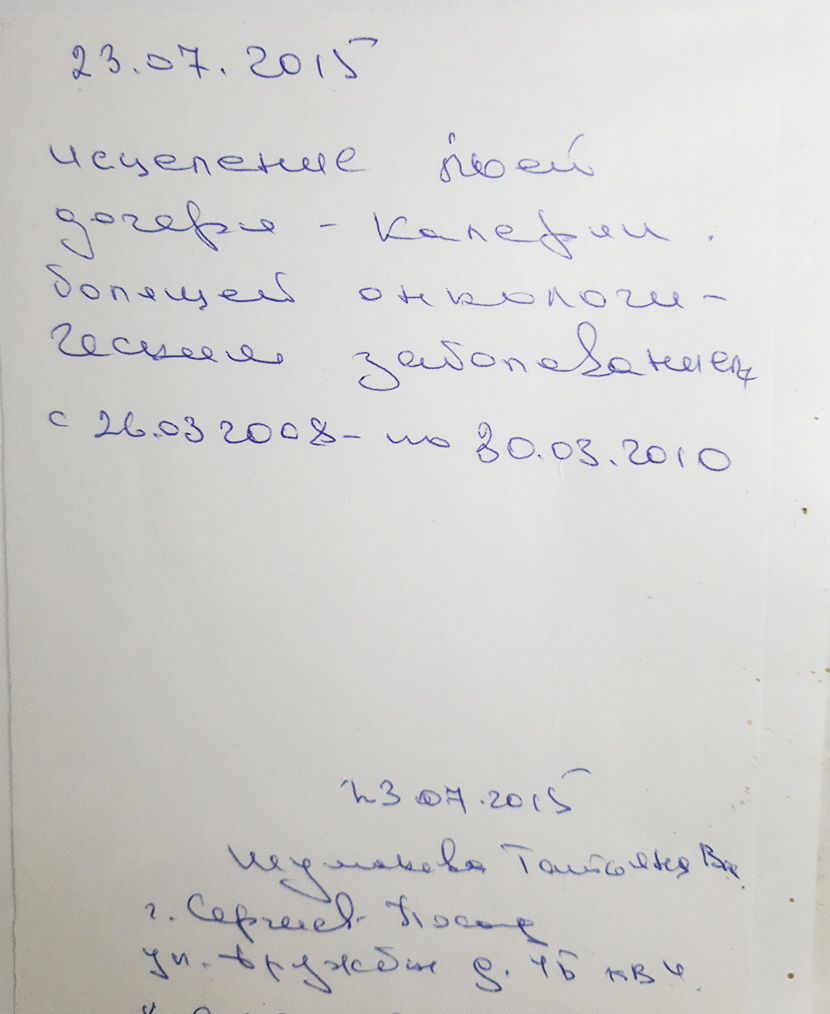 23.07.2015
исцеление моей
дочери - Калерии.
болящей онкологи-
ческим заболеванием
с 26.03 2008 - по 30.03.2010
23.07.2015
Шумакова Татьяна
г. Сергиев-Посад
ул. Дружбы д. 4 кв 4